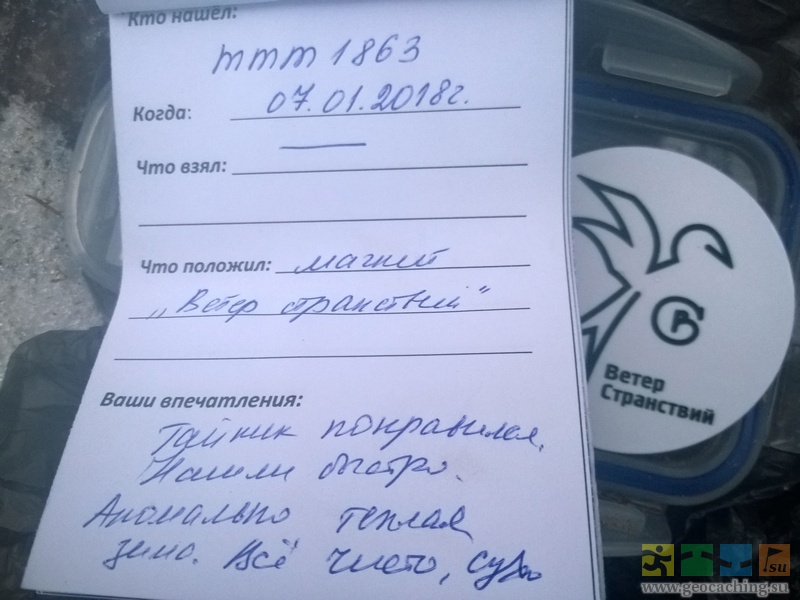 Кто нашёл:
ттт 1863
Когда: 07.01.2018г.
Что взял: —
Что положил: магнит
„Ветер странствий"
Ваши впечатления:
Тайник понравился.
Нашли быстро.
Аномально теплая
зима. Всё чисто, сухо
Ветер
Странствий
.su
www.geocaching.su